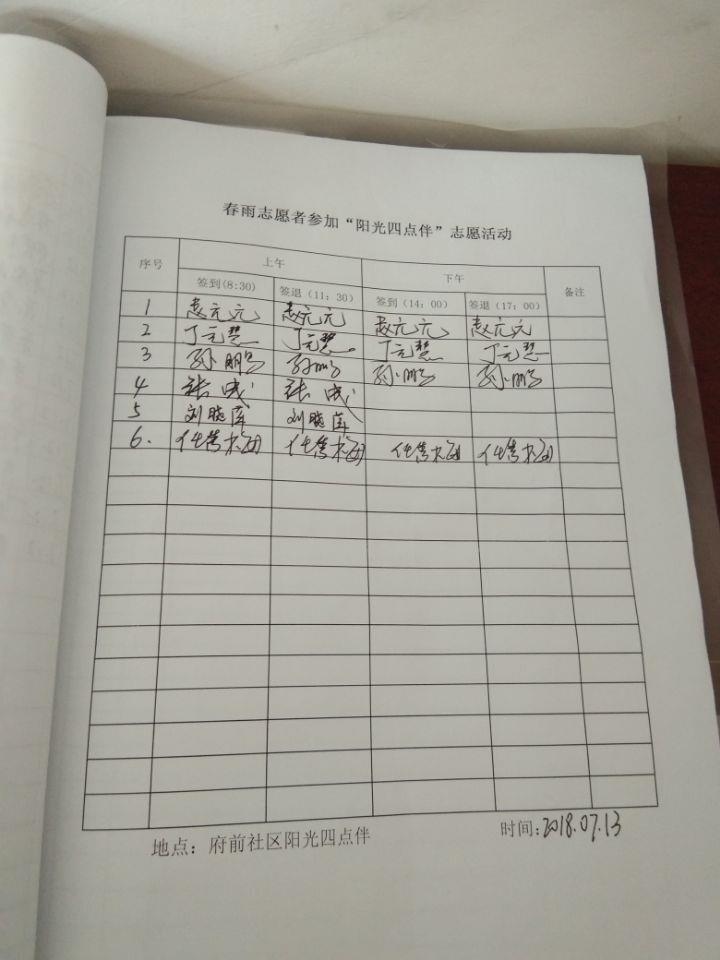 春雨志愿者参加“阳光四点伴”志愿活动
序号 上午 下午 备注
签到(8:30) 签退(11:30) 签到(14:00) 签退(17:00)
1 赵元元 赵元元 赵元元 赵元元
2 丁元慧 丁元慧 丁元慧 丁元慧
3 孙鹏 孙鹏 孙鹏 孙鹏
4 张成 张成
5 刘晓 刘晓
6.
地点：府前社区阳光四点伴
时间:2018.07.13